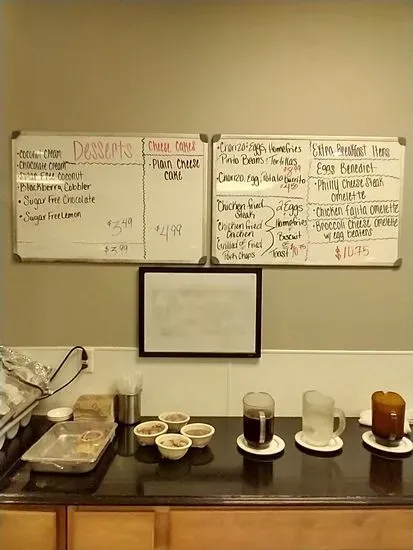 Desserts
• Coconut Cream
• Chocolate Cream
• Sugar Free Coconut
• Blackberry Cobbler
• Sugar Free Chocolate
• Sugar Free Lemon
$3.49
$3.99
Cheese Cakes
• Plain Cheese
Cake
$4.99
• Chorizo & Eggs Homefries
Pinto Beans & Tortillas
• Chorizo, Egg, Potato Burrito
• Chicken Fried
Steak
• Chicken Fried
Chicken
• Grilled or Fried
Pork Chops
2 Eggs
Homefries
Biscuit
or
Toast
Extra Breakfast Items
Eggs Benedict
• Philly Cheese Steak
Omelette
• Chicken Fajita Omelette
• Broccoli Cheese Omelette
w/ egg beaters
$10.75